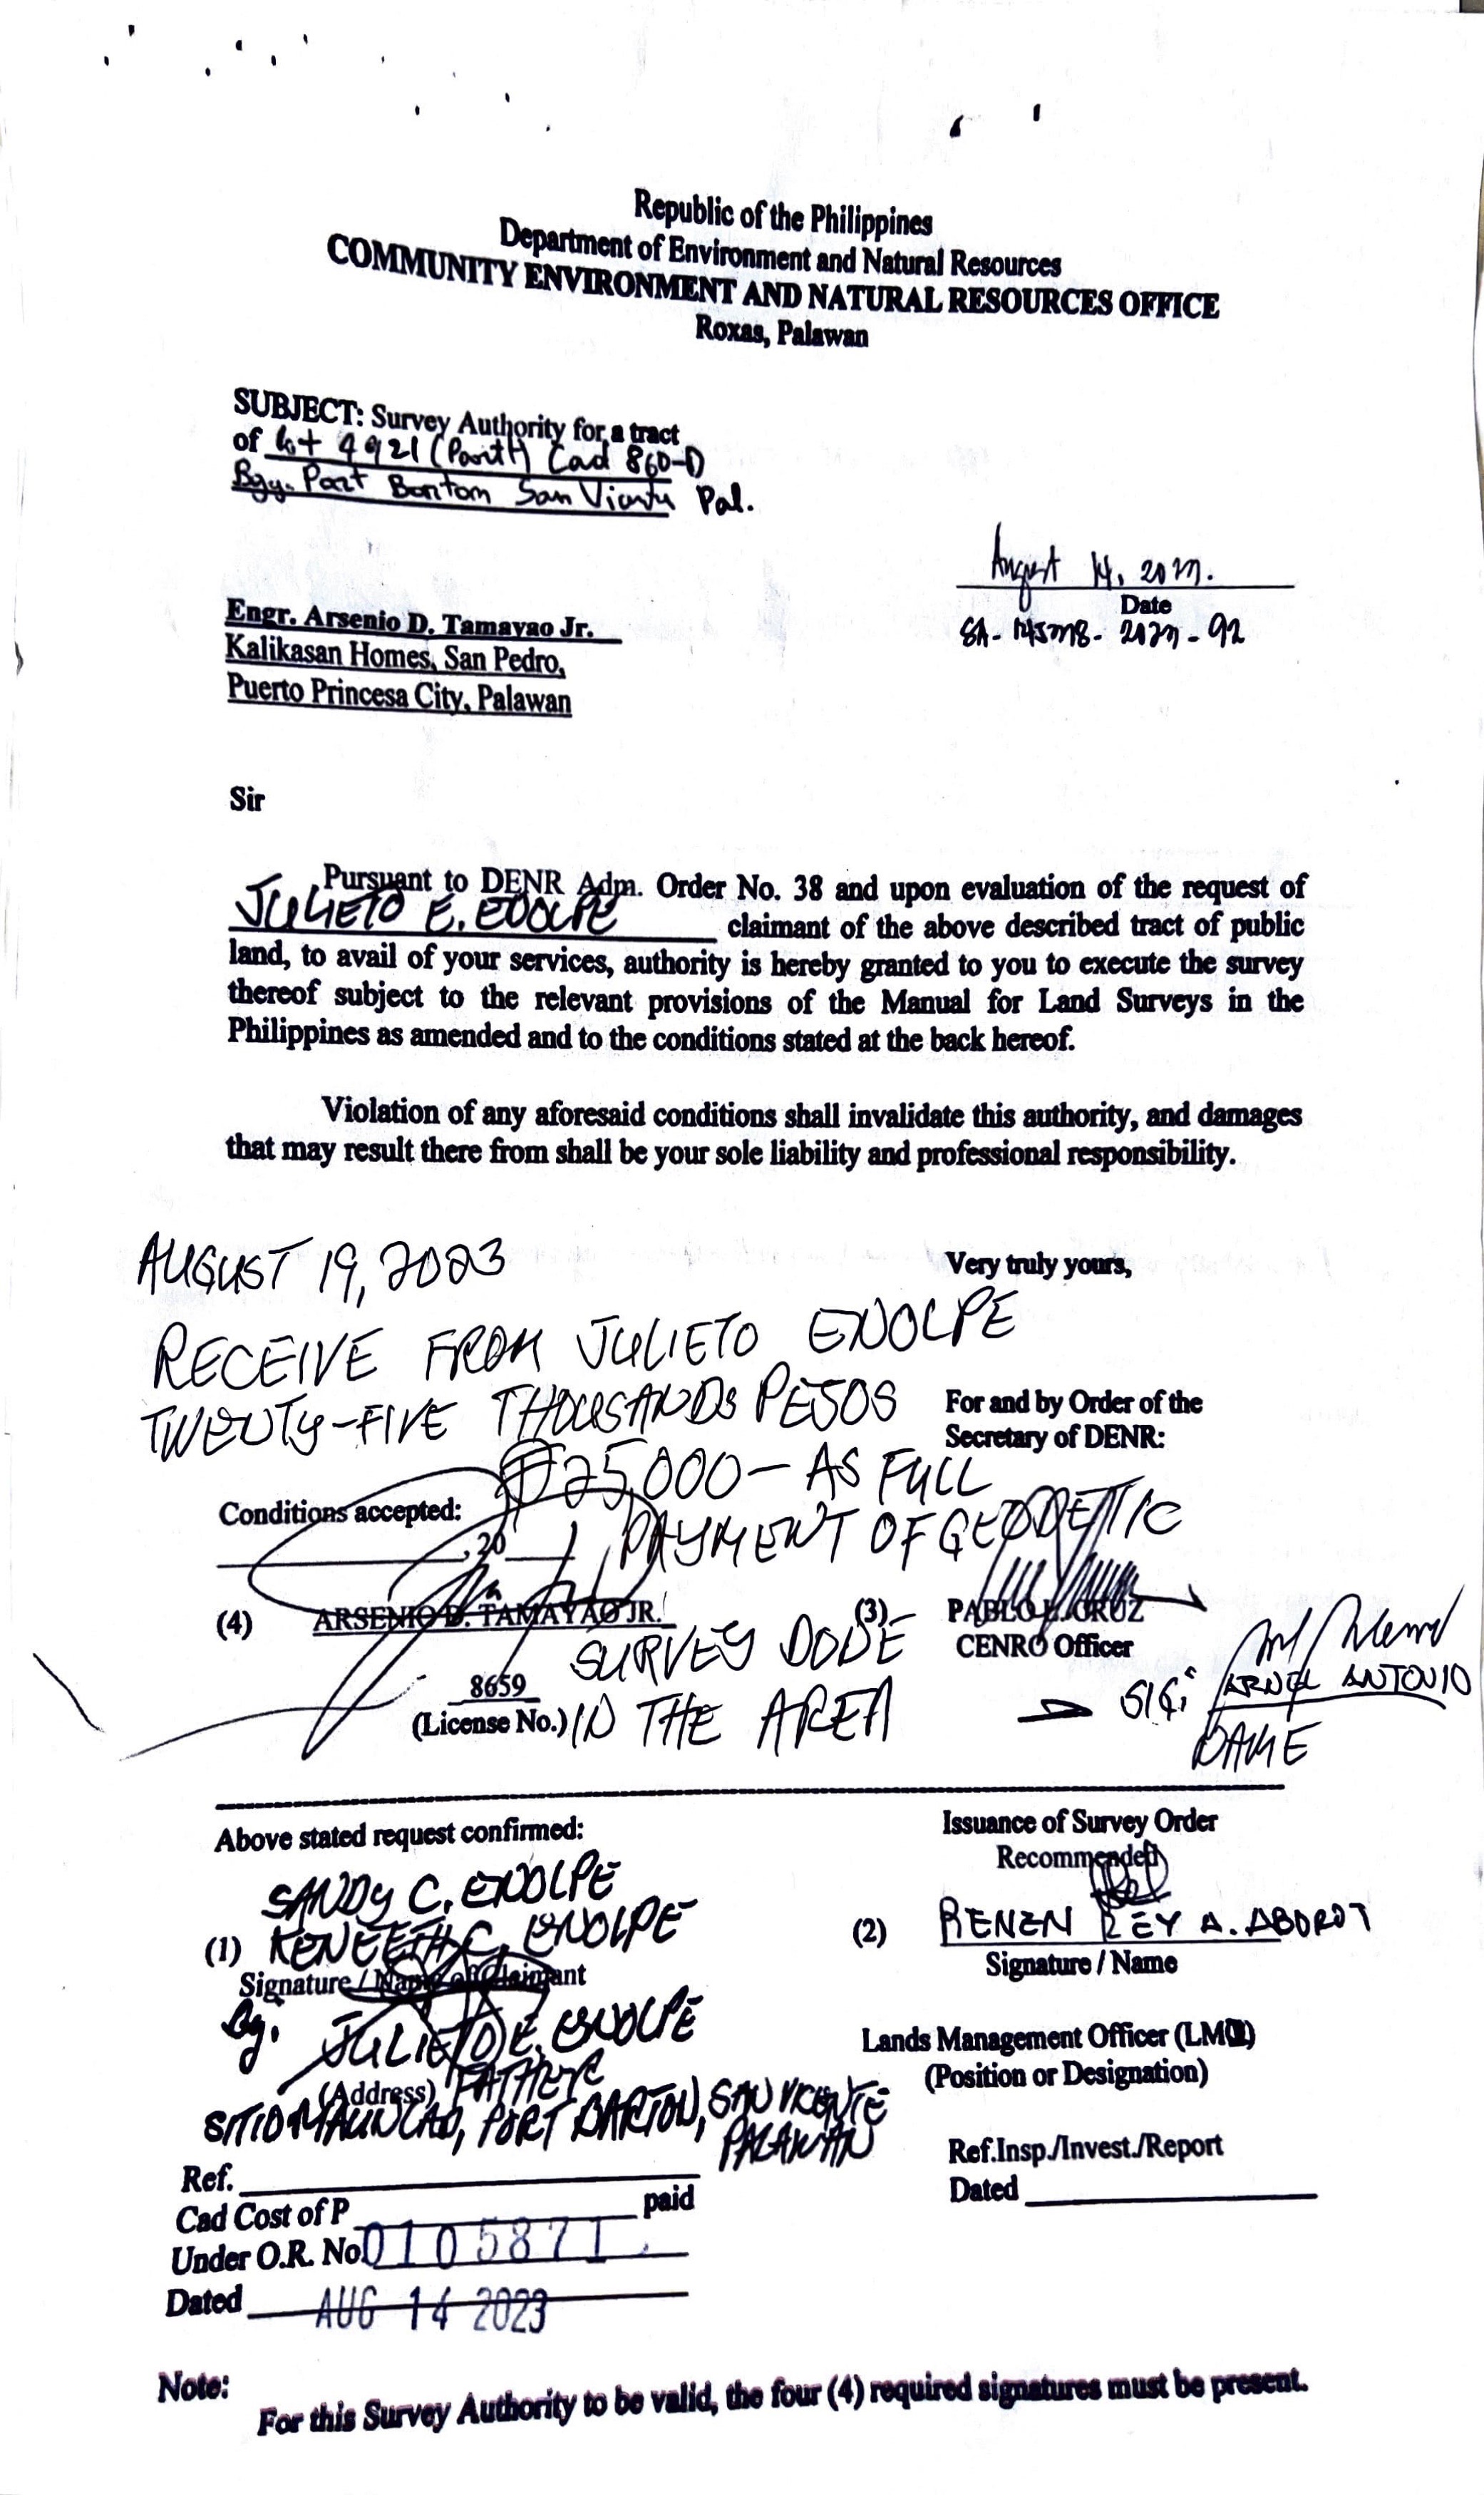 Republic of the Philippines
Department of Environment and Natural Resources
COMMUNITY ENVIRONMENT AND NATURAL RESOURCES OFFICE
Roxas, Palawan
SUBJECT: Survey Authority for a tract
of Lot 4921 (Part) Cad 860-D
Bgy. Port Barton San Vicente Pal.
August 14, 2023.
Date
Engr. Arsenio D. Tamayao Jr.
Kalikasan Homes, San Pedro,
Puerto Princesa City, Palawan
Sir
Pursuant to DENR Adm. Order No. 38 and upon evaluation of the request of
JULIETO E. ENOLPE claimant of the above described tract of public
land, to avail of your services, authority is hereby granted to you to execute the survey
thereof subject to the relevant provisions of the Manual for Land Surveys in the
Philippines as amended and to the conditions stated at the back hereof.
Violation of any aforesaid conditions shall invalidate this authority, and damages
that may result there from shall be your sole liability and professional responsibility.
AUGUST 19, 2023
Very truly yours,
RECEIVE FROM JULIETO ENOLPE
TWENTY-FIVE THOUSANDS PESOS
For and by Order of the
Secretary of DENR:
₱25,000- AS FULL
Conditions accepted:
PAYMENT OF GEODETIC
, 20
(4) ARSENIO D. TAMAYAO JR.
(3) PABLO L. CRUZ
CENRO Officer
SURVEY DONE
8659
(License No.)
IN THE AREA
SIG: ARNEL ANTONIO
DAME
Above stated request confirmed:
Issuance of Survey Order
Recommended
SANDY C. ENOLPE
(1) KENEETH C. ENOLPE
Signature / Name of Claimant
(2) RENEN REY A. ABOROT
Signature / Name
By: JULIETO E. ENOLPE
FATHER
(Address)
SITIO MAUNLAD, PORT BARTON, SAN VICENTE
PALAWAN
Lands Management Officer (LMO)
(Position or Designation)
Ref.Insp./Invest./Report
Dated
Ref.
Cad Cost of P paid
Under O.R. No. 0105871
Dated AUG 14 2023
Note:
For this Survey Authority to be valid, the four (4) required signatures must be present.